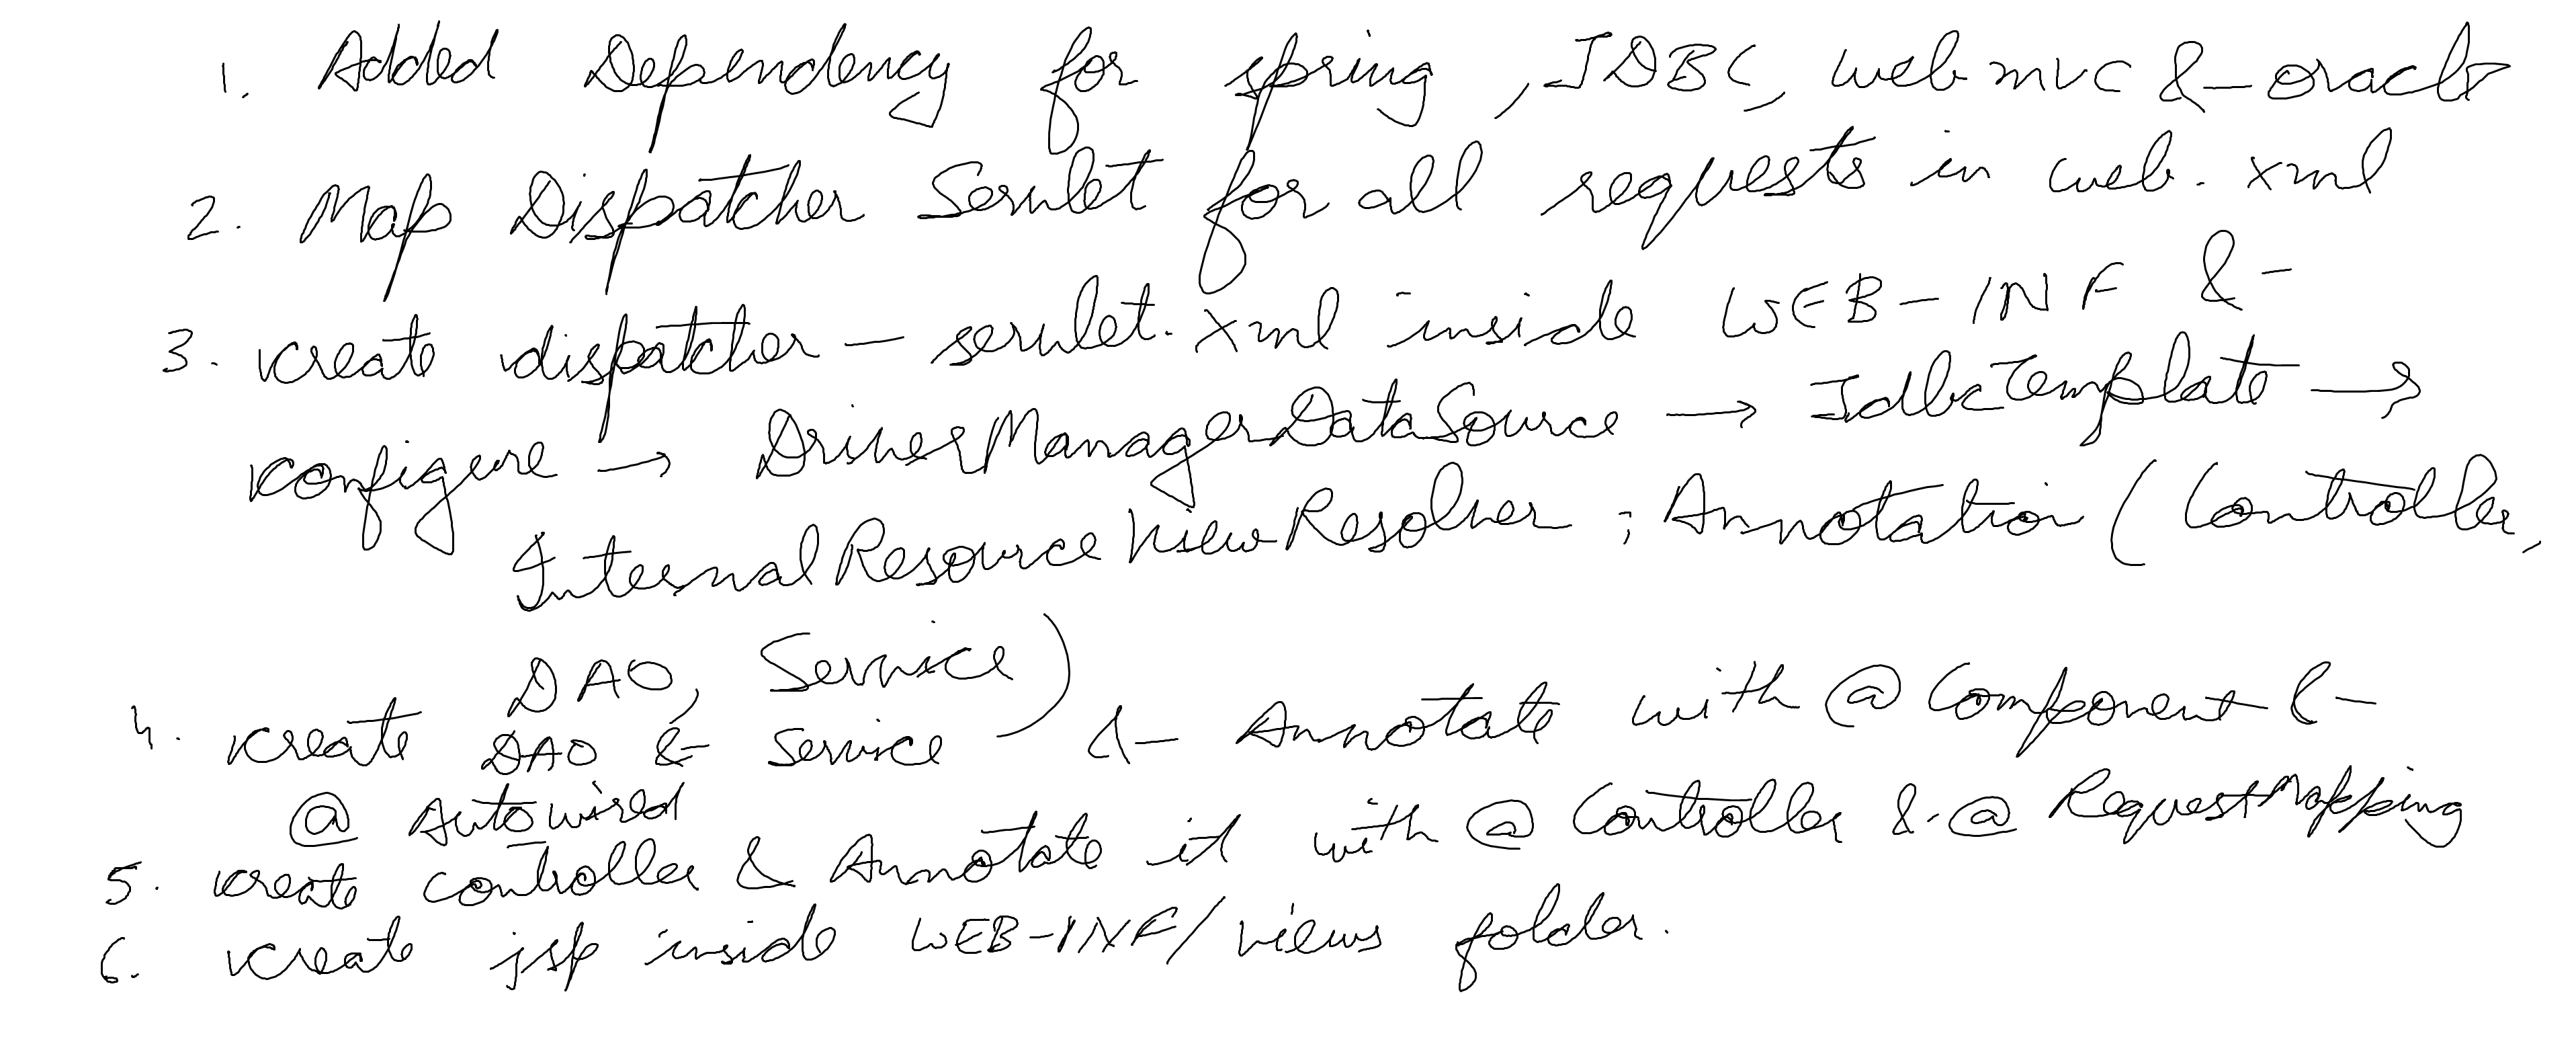 1. Added Dependency for spring, JDBC, web mvc & oracle
2. Map Dispatcher Servlet for all requests in web.xml
3. create dispatcher - servlet.xml inside WEB-INF &
configure → DriverManagerDataSource → JdbcTemplate →
InternalResourceViewResolver ; Annotation (Controller,
DAO, Service)
4. create DAO & Service & Annotate with @ Component &
@ Autowired
5. create controller & Annotate it with @ Controller & @ RequestMapping
6. create jsp inside WEB-INF/views folder.